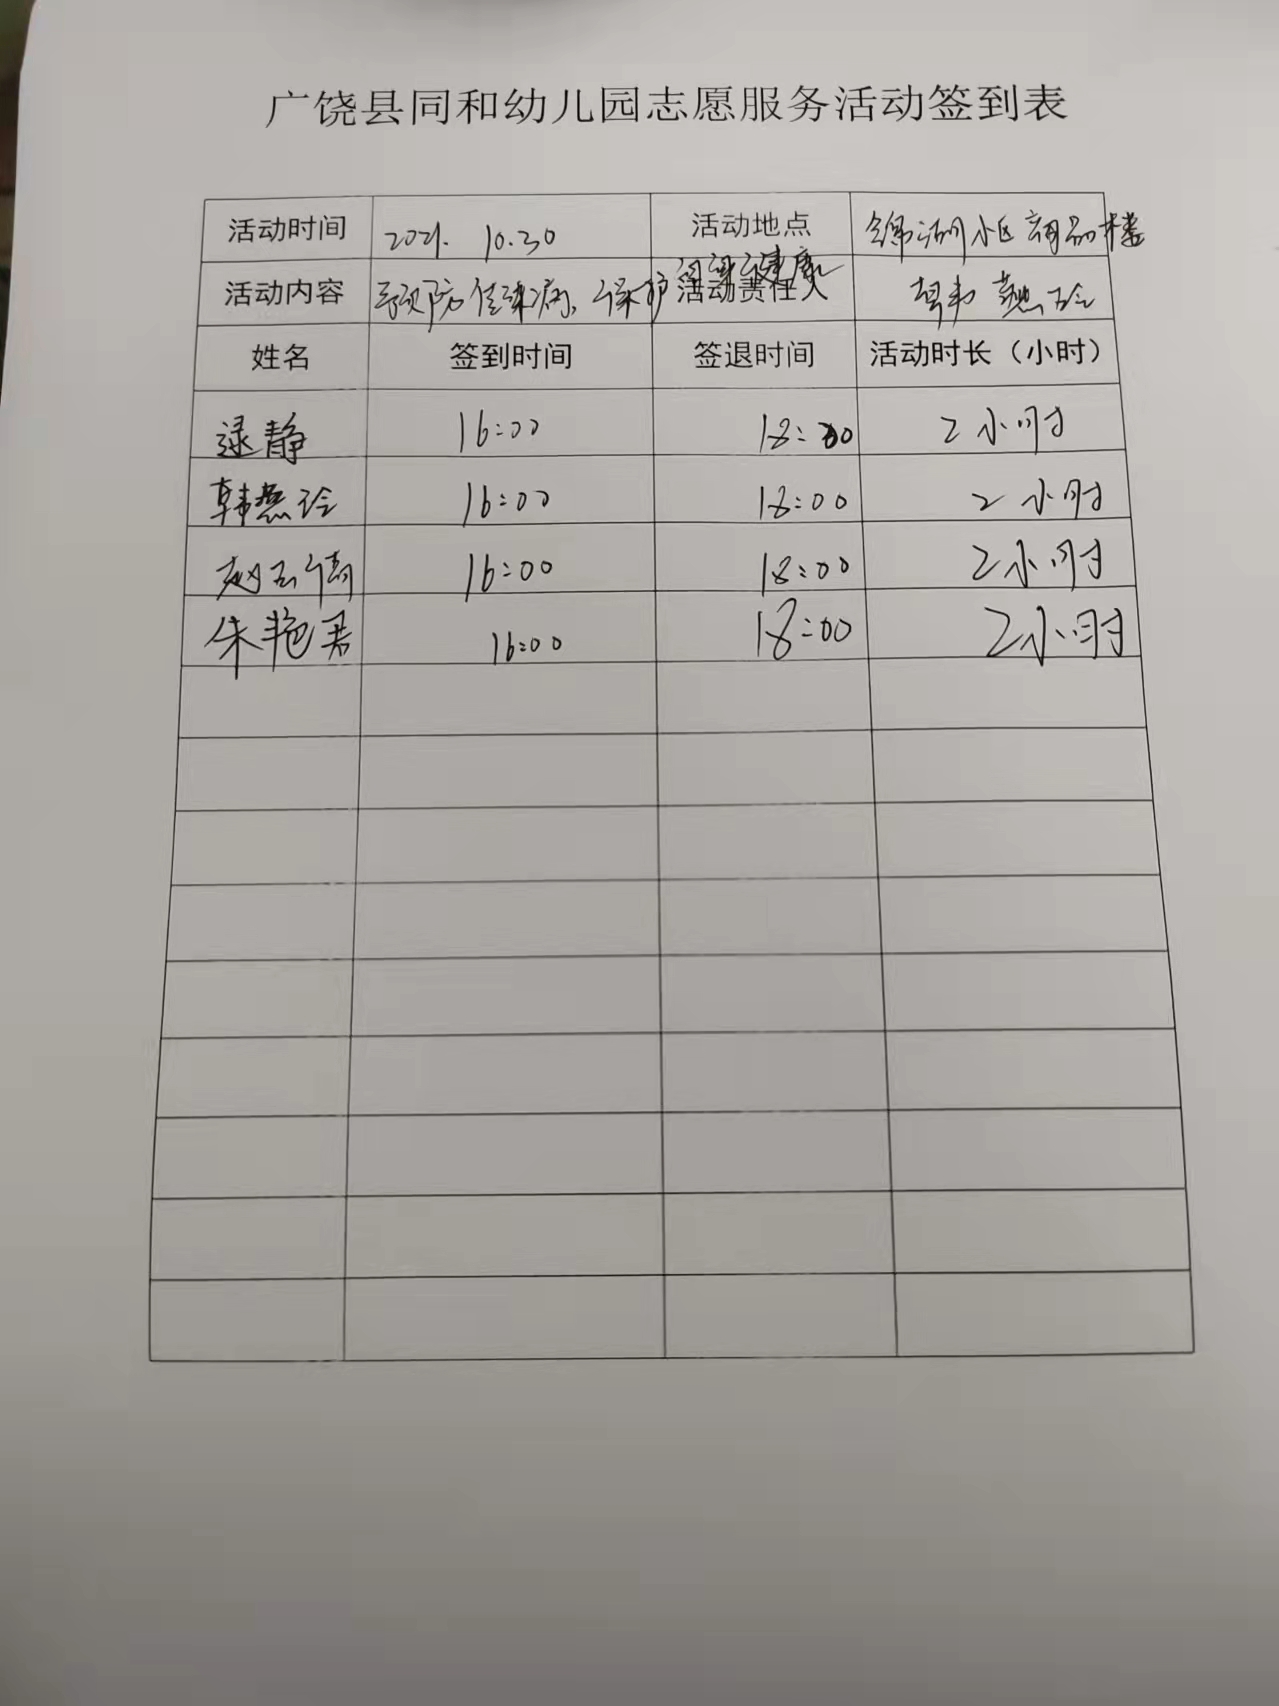 广饶县同和幼儿园志愿服务活动签到表
活动时间 2021. 10.30 活动地点 锦湖小区商品楼
活动内容 预防传染病、保护自身健康 活动责任人 韩燕玲
姓名 签到时间 签退时间 活动时长（小时）
逯静 16:00 18:00 2小时
韩燕玲 16:00 18:00 2小时
赵 16:00 18:00 2小时
朱艳君 16:00 18:00 2小时